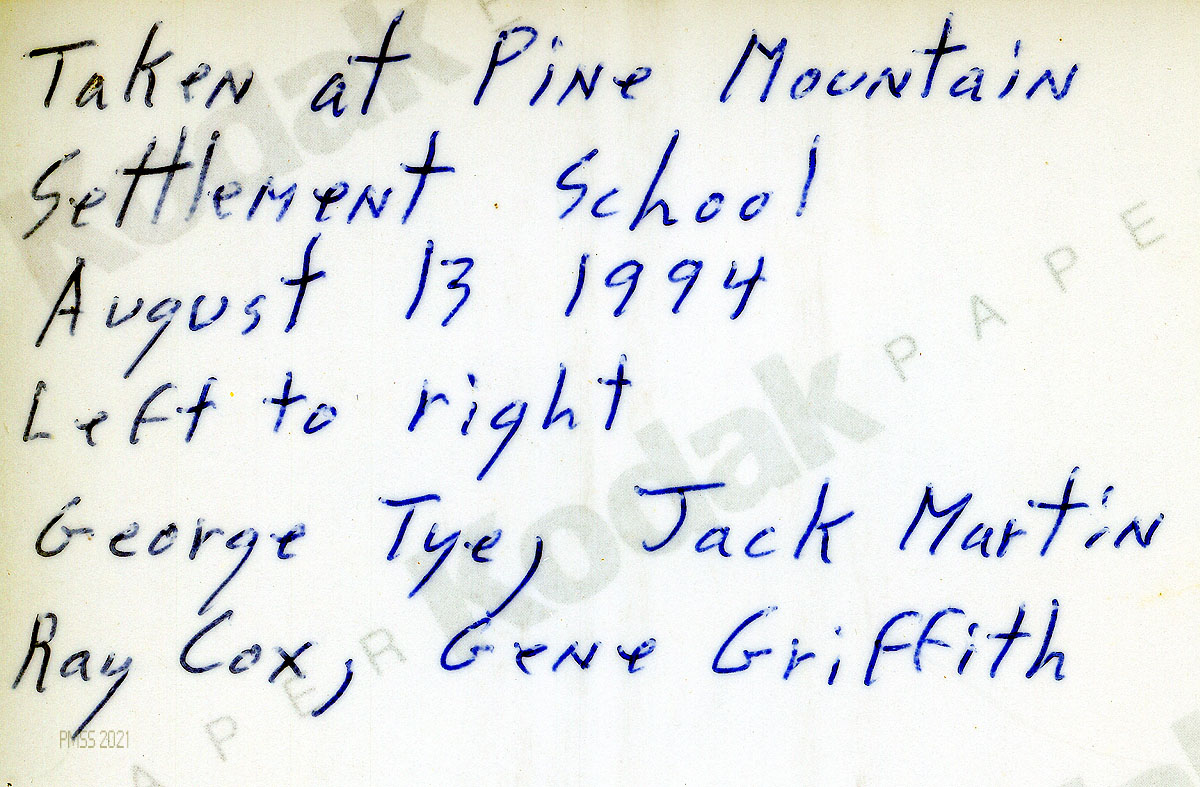 Taken at Pine Mountain
Settlement School
August 13 1994
Left to right
George Tye, Jack Martin
Ray Cox, Gene Griffith
PMSS 2021
Kodak
Kodak PAPE
PAPER
Kodak